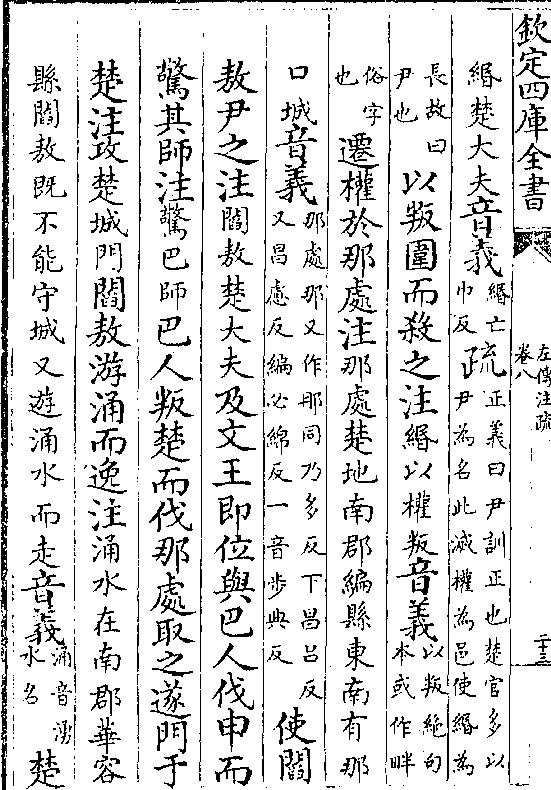 欽定四庫全書
左傳注疏
卷八
二十三
緡楚大夫音義緡亡巾反疏正義曰尹訓正也楚官多以尹為名此滅權為邑使緡為
長故曰尹也以叛圍而殺之注緡以權叛音義以叛絶句本或作畔
俗字也遷權於那處注那處楚地南郡編縣東南有那
口城音義那處那又作𨙻同乃多反下昌吕反又昌慮反編必綿反一音步典反使閻
敖尹之注閻敖楚大夫及文王即位與巴人伐申而
驚其師注驚巴師巴人叛楚而伐那處取之遂門于
楚注攻楚城門閻敖游涌而逸注涌水在南郡華容
縣閻敖既不能守城又遊涌水而走音義涌音湧水名楚